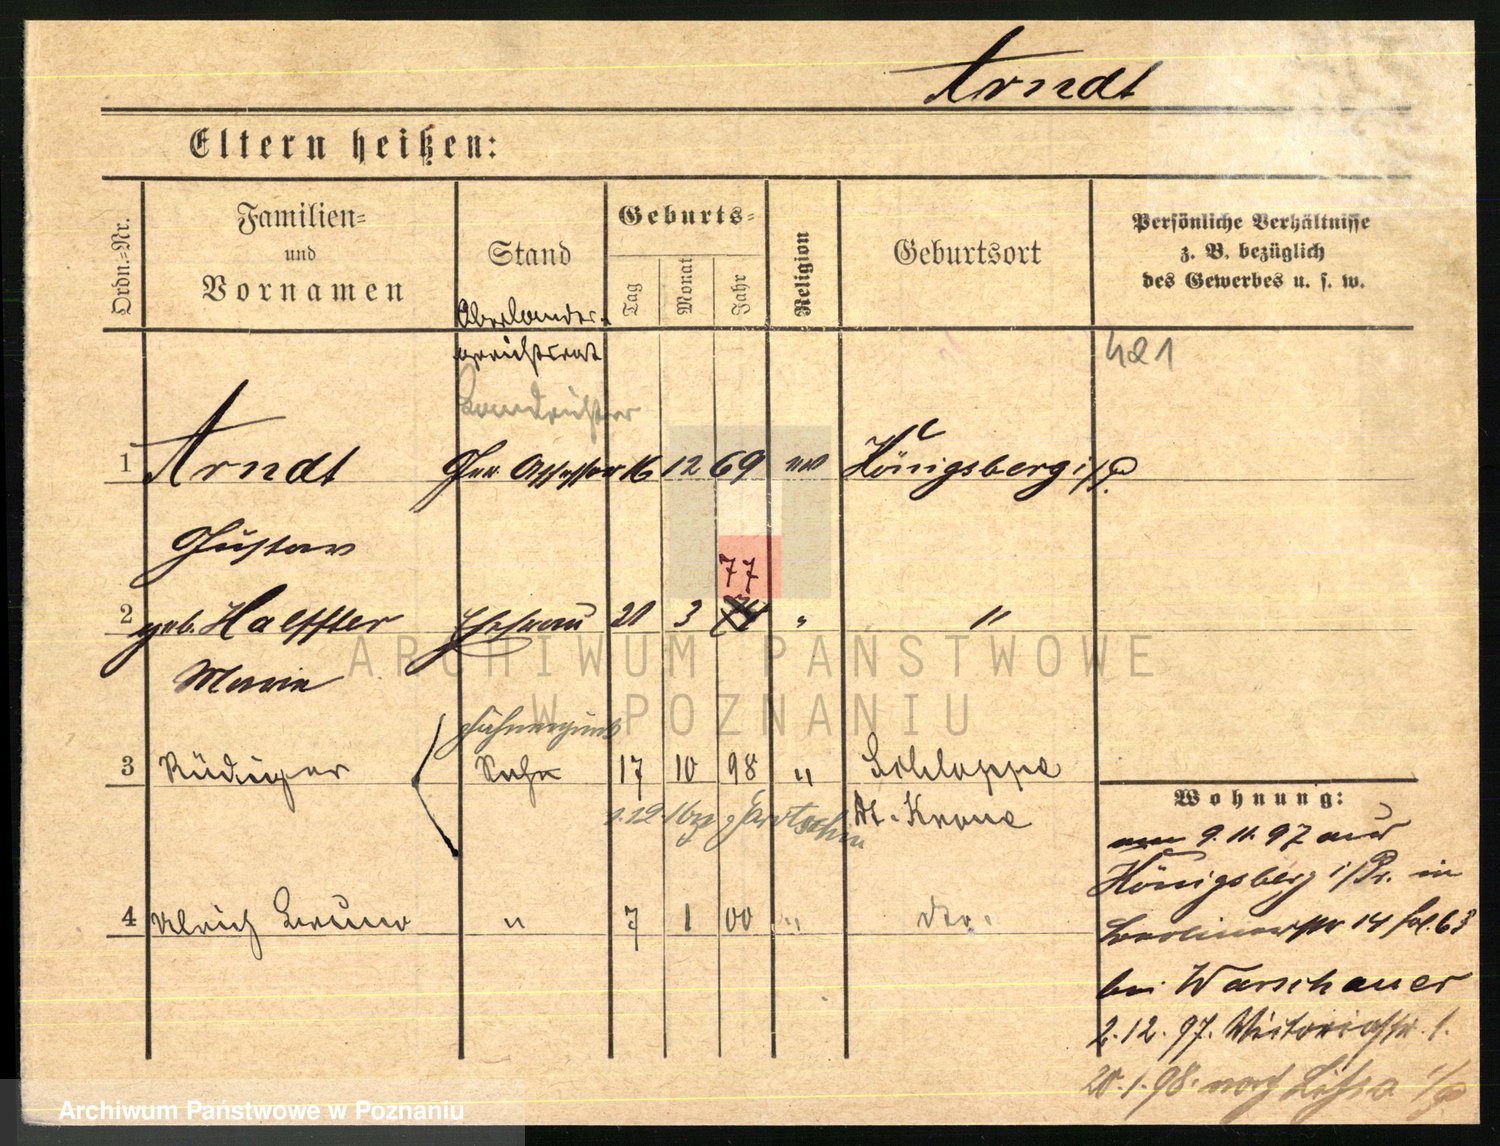 Arndt
Eltern heißen:
Ordn.=Nr.
Familien=
und
Vornamen
Stand
Geburts=
Tag
Monat
Jahr
Religion
Geburtsort
Persönliche Verhältnisse
z. B. bezüglich
des Gewerbes u. s. w.
Oberlandes-
gerichtsrat
Landrichter
421
1 Arndt Ger Assessor 16 12 69 ev Königsberg i/P
Gustav
77
2 geb. Halffter Ehefrau 20 3 74 " "
Marie
3 Rüdiger Sohn 17 10 98 " Schloppe
1.12. Jarotschin Dt. Krone
4 Ulrich Bruno " 7 1 00 " do.
Wohnung:
am 9.11.97 aus
Königsberg i/Pr. in
Berlinerstr 14 fol. 63
bei Warschauer
2.12.97. Victoriastr. 1.
20.1.98. nach Lissa i/P
ARCHIWUM PAŃSTWOWE
W POZNANIU
Archiwum Państwowe w Poznaniu